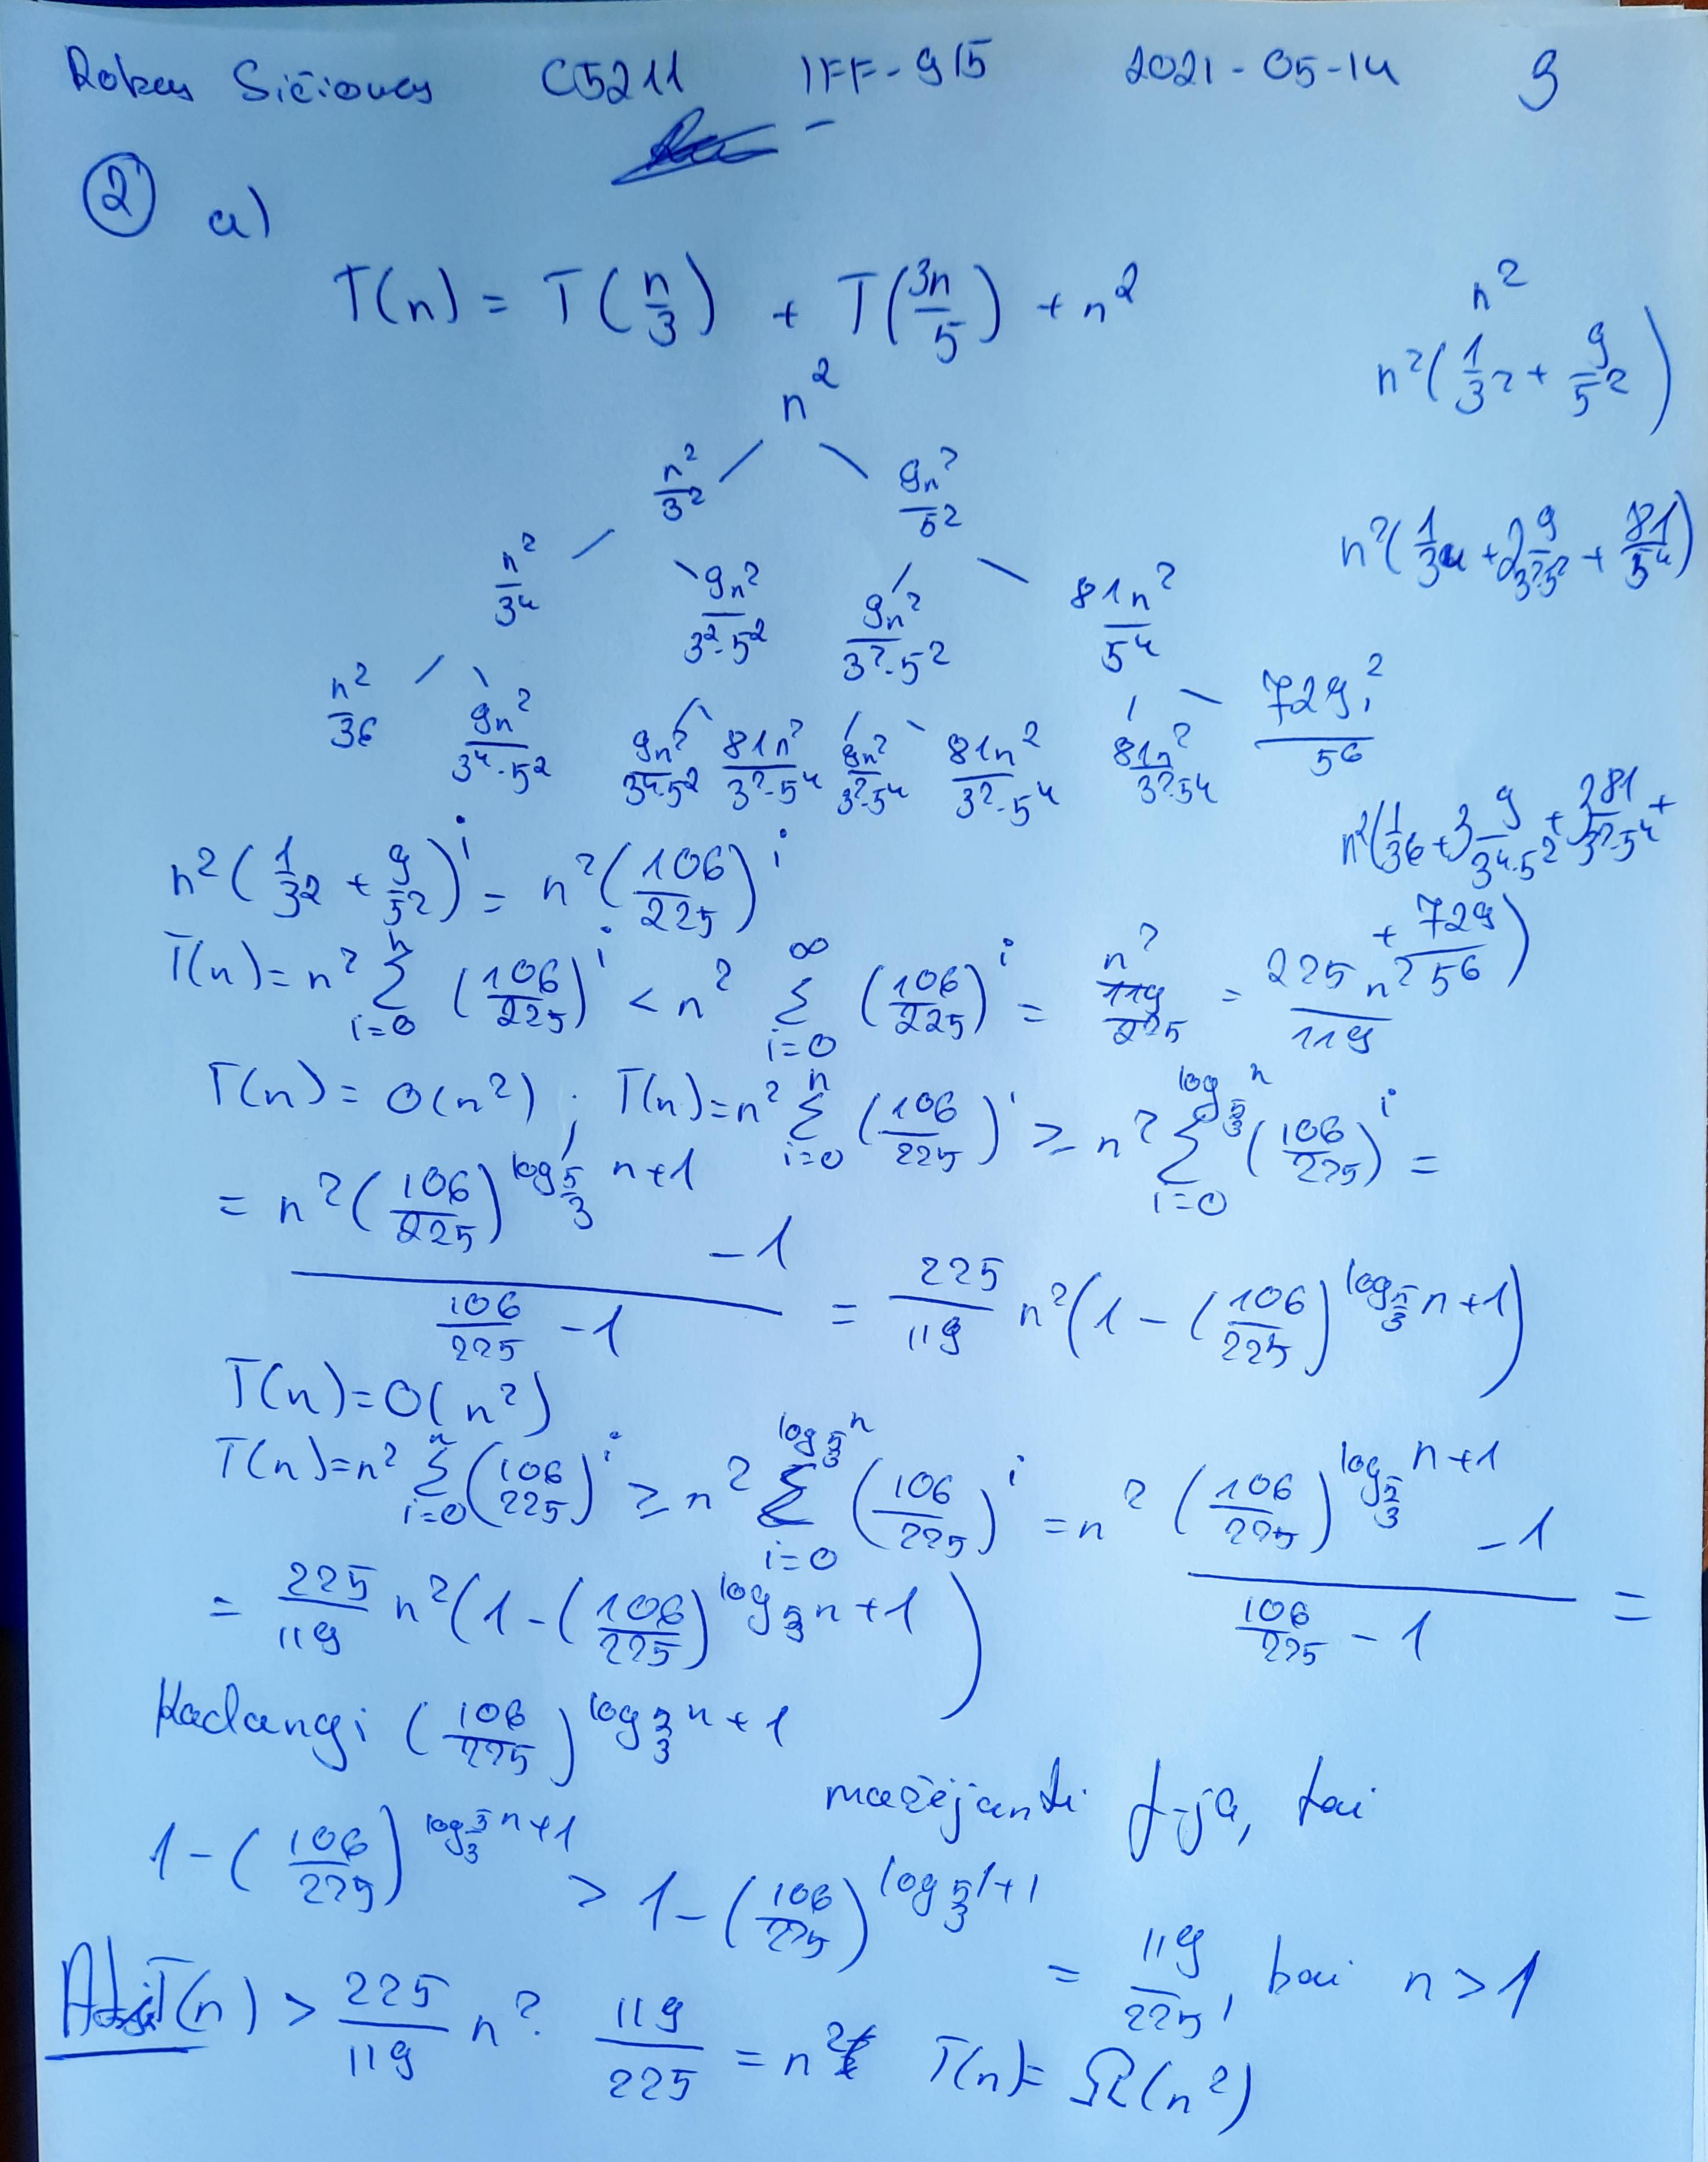 Rokas Sičiovas C5211 IFF-9/5 2021-05-14 9
② a)
T(n) = T(n/3) + T(3n/5) + n²
n²
n²
n²(1/3² + 9/5²)
n²/3² 9n²/5²
n²/3⁴ 9n²/(3²·5²) 9n²/(3²·5²) 81n²/5⁴
n²(1/3⁴ + 2 9/(3²·5²) + 81/5⁴)
n²/3⁶ 9n²/(3⁴·5²) 9n²/(3⁴·5²) 81n²/(3²·5⁴) 81n²/(3²·5⁴) 81n²/(3²·5⁴) 729n²/5⁶
n²(1/3⁶ + 3 9/(3⁴·5²) + 3 81/(3²·5⁴) +
+ 729/5⁶)
n²(1/3² + 9/5²)^i = n²(106/225)^i
T(n) = n² Σ_{i=0}^{n} (106/225)^i < n² Σ_{i=0}^{∞} (106/225)^i = n²/(119/225) = 225n²/119
T(n) = O(n²); T(n) = n² Σ_{i=0}^{n} (106/225)^i ≥ n² Σ_{i=0}^{log_{5/3} n} (106/225)^i =
= n² ((106/225)^{log_{5/3} n+1} - 1)/(106/225 - 1) = 225/119 n²(1 - (106/225)^{log_{5/3} n+1})
T(n) = O(n²)
T(n) = n² Σ_{i=0}^{n} (106/225)^i ≥ n² Σ_{i=0}^{log_{5/3} n} (106/225)^i = n² ((106/225)^{log_{5/3} n+1} - 1)/(106/225 - 1) =
= 225/119 n²(1 - (106/225)^{log_{5/3} n+1})
Kadangi (106/225)^{log_{5/3} n+1} mažėjanti f-ja, tai
1 - (106/225)^{log_{5/3} n+1} > 1 - (106/225)^{log_{5/3} 1+1} = 119/225, kai n > 1
T(n) > 225/119 n² · 119/225 = n² T(n) = Ω(n²)